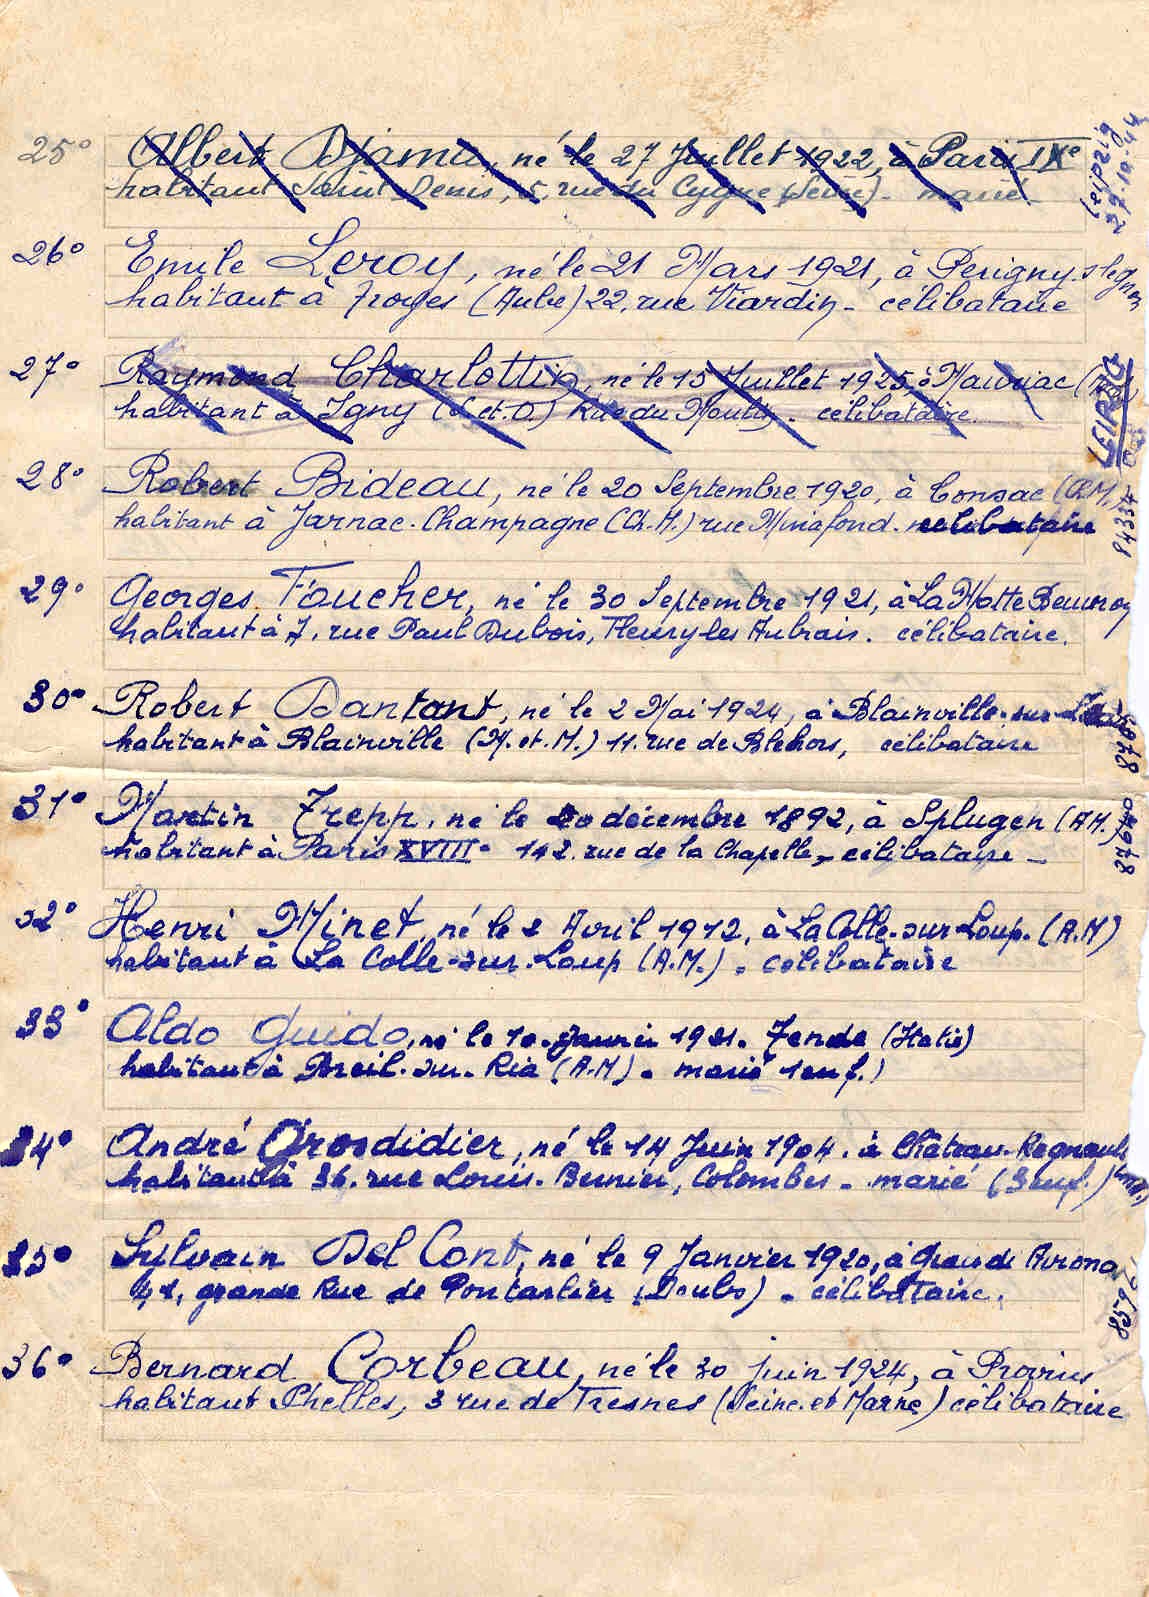 25° Albert Djama, né le 27 Juillet 1922, à Paris IXe
habitant Saint Denis, 5, rue du Cygne (Seine) - marié
Leipzig
27-10-44
26° Emile Leroy, né le 21 Mars 1921, à Perigny
habitant à Troyes (Aube) 22, rue Viardin - célibataire
27° Raymond Charlottin, né le 15 Juillet 1925, à Mauriac
habitant à Igny (S. et. O.) Rue du Moulin - célibataire.
LEIPZIG
28° Robert Bideau, né le 20 Septembre 1920, à Consac (Ch.M.)
habitant à Jarnac-Champagne (Ch.M.) rue Minafond. celibataire
94334
29° Georges Foucher, né le 30 Septembre 1921, à La Motte Beuvron
habitant à 7, rue Paul Dubois, Fleury les Aubrais. célibataire.
30° Robert Dantant, né le 2 Mai 1924, à Blainville-sur-
habitant à Blainville (M. et. M.) 11. rue de, célibataire
31° Martin Trepp, né le 20 décembre 1892, à Splugen
habitant à Paris XVIII° 142. rue de la Chapelle, célibataire -
32° Henri Minet, né le 2 Avril 1912, à La Colle-sur-Loup. (A.M)
habitant à La Colle-sur-Loup (A.M.) - célibataire
33° Aldo Guido, né le 10 Janvier 1921. Tende (Italie)
habitant à Breil-sur-Ria (A-M) - marié 1 enf.)
34° André Grosdidier, né le 14 Juin 1904. à Château-Regnault
habitant à 36. rue Louis-Bernier, Colombes - marié (3 enf.)
35° Sylvain Del Cont, né le 9 Janvier 1920, à
grande Rue de Pontarlier (Doubs) - célibataire.
36° Bernard Corbeau, né le 30 juin 1924, à Provins
habitant Chelles, 3 rue de Tresnes (Seine. et Marne) célibataire